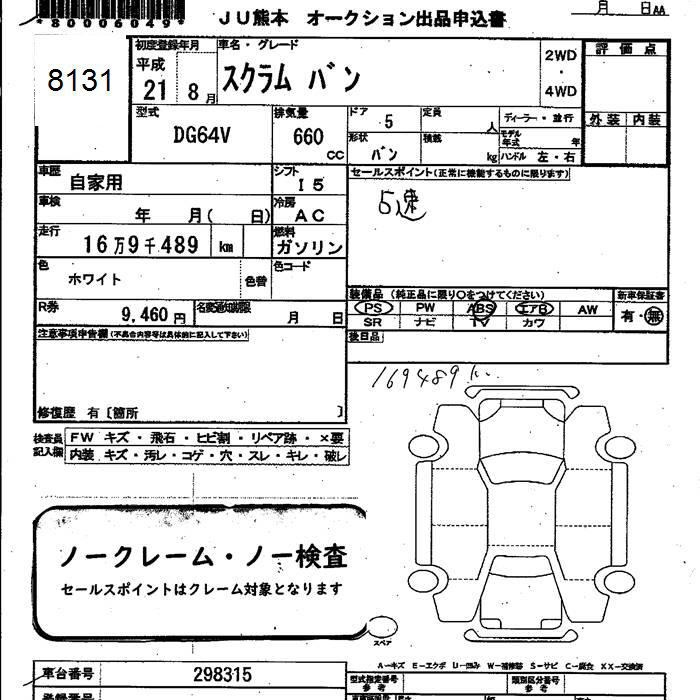 *80006049*
JU熊本 オークション出品申込書
月 日AA
8131
初度登録年月 車名・グレード
平成
21 8月
スクラム バン
2WD
・
4WD
評価点
外装 内装
型式 排気量 ドア 定員 ディーラー・並行
DG64V 660 CC 5 人
モデル年式 年
形状 積載
バン kg ハンドル 左・右
車歴 シフト セールスポイント(正常に機能するものに限ります)
自家用 I5 5速
車検 冷房
年 月( 日) AC
走行 燃料
16万9千489 km ガソリン
色 色コード
ホワイト 色替
装備品 (純正品に限り○をつけてください) 新車保証書
R券 名変通知期限
9,460円 月 日
PS PW ABS エアB AW 有・無
SR ナビ TV カワ
注意事項申告欄(不具合内容等は具体的に記入して下さい) 後日品
169489 k
修復歴 有〔箇所 〕
検査員 FW キズ・飛石・ヒビ割・リペア跡・×要
記入欄 内装 キズ・汚レ・コゲ・穴・スレ・キレ・破レ
ノークレーム・ノー検査
セールスポイントはクレーム対象となります
スペア
A−キズ E−エクボ U−凹み W−補修跡 S−サビ C−腐食 XX−交換済
車台番号 298315 型式指定番号 類別区分番号
参考 参考
登録番号